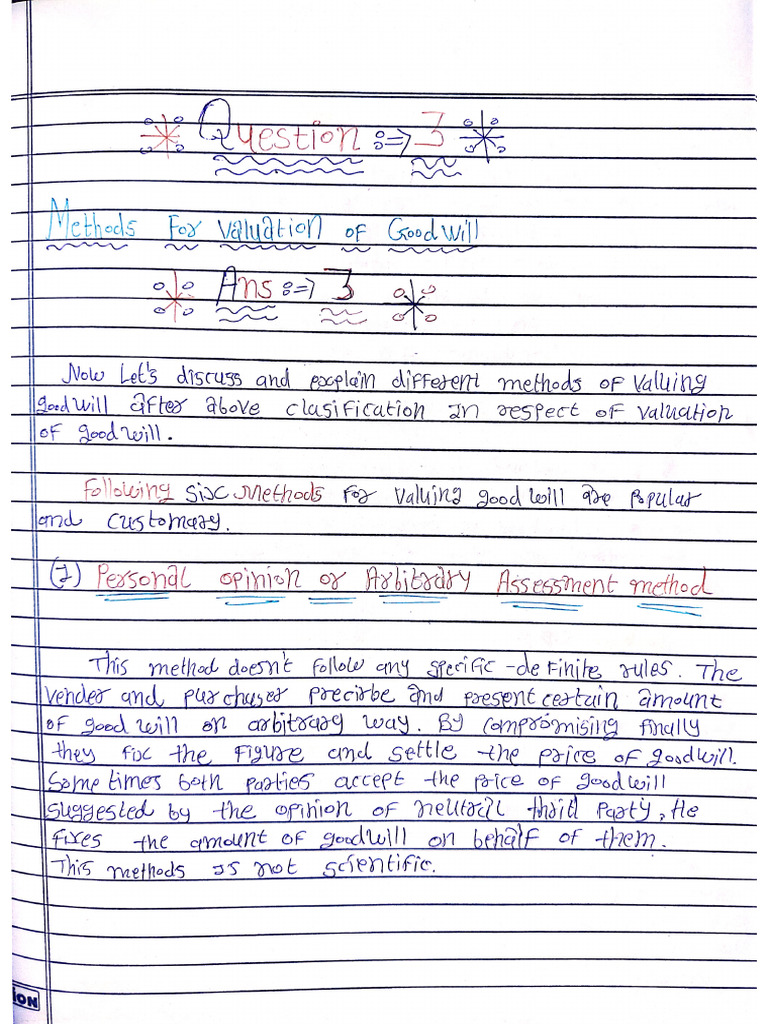 Question :=> 3
Methods For Valuation of Goodwill
Ans :=> 3
Now Let's discuss and explain different methods of valuing
goodwill after above clasification in respect of valuation
of goodwill.
Following six methods for valuing goodwill are popular
and customary.
(1) Personal opinion or Arbitrary Assessment method
This method doesn't follow any specific -definite rules. The
vender and purchuser precirbe and present certain amount
of goodwill on arbitrary way. By compromising finally
they fix the figure and settle the price of goodwill.
Sometimes both parties accept the price of goodwill
suggested by the opinion of neutral thrid party, He
fixes the amount of goodwill on behalf of them.
This methods is not scientific.
ION